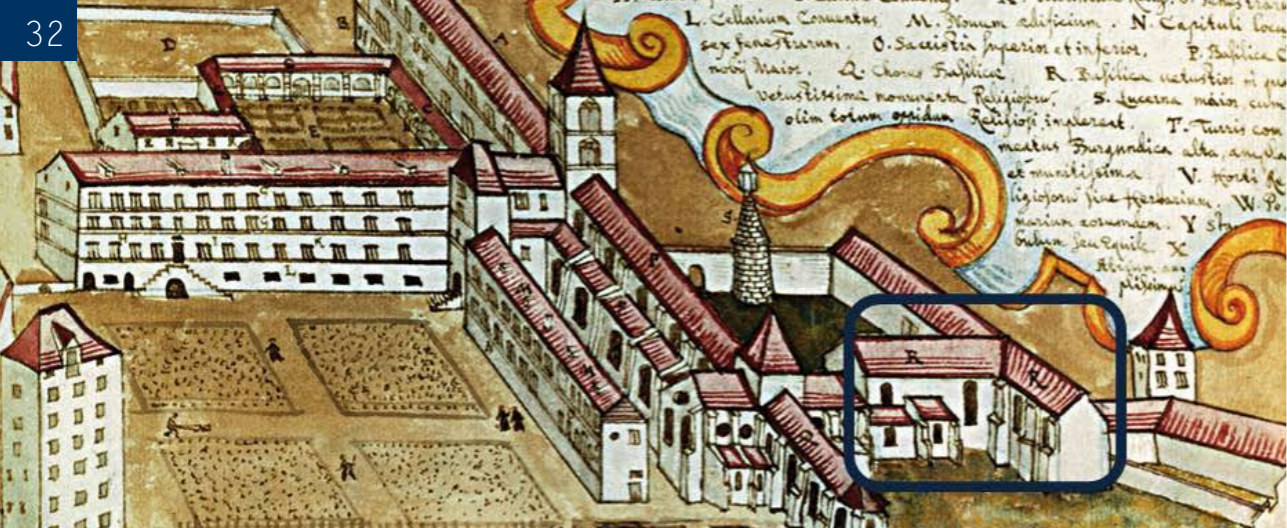 32
L. Cellarium Conuentus. M. Nouum ædificium. N. Capituli loc
sex fenestrarum. O. Sacristia superior et inferior. P. Basilica
nobij maior. Q. Chorus Basilicæ. R. Basilica uetustior
Vetustissima monumenta Religiosorũ. S. Lucerna maior, cum
olim totum oppidum Religiosi implerent. T. Turris com
meatus Burgundica alta, ampla
et munitissima V. Horti
ligiosorũ siue Herbarium. W. P
marium eorundem. Y Sta
bulum seu Equile X
D
B
A
C
E
F
G
H I K
L
P
S
R R